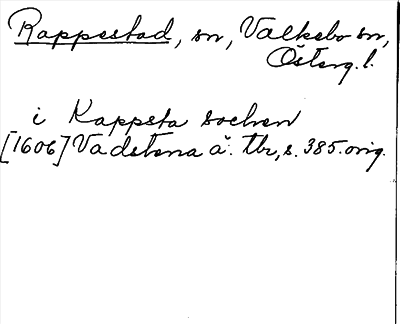 Rappestad, sn, Valkebo sn,
Österg.l.
i Kappsta sochen
[1606] Vadstena ä. tb, s. 385. orig.